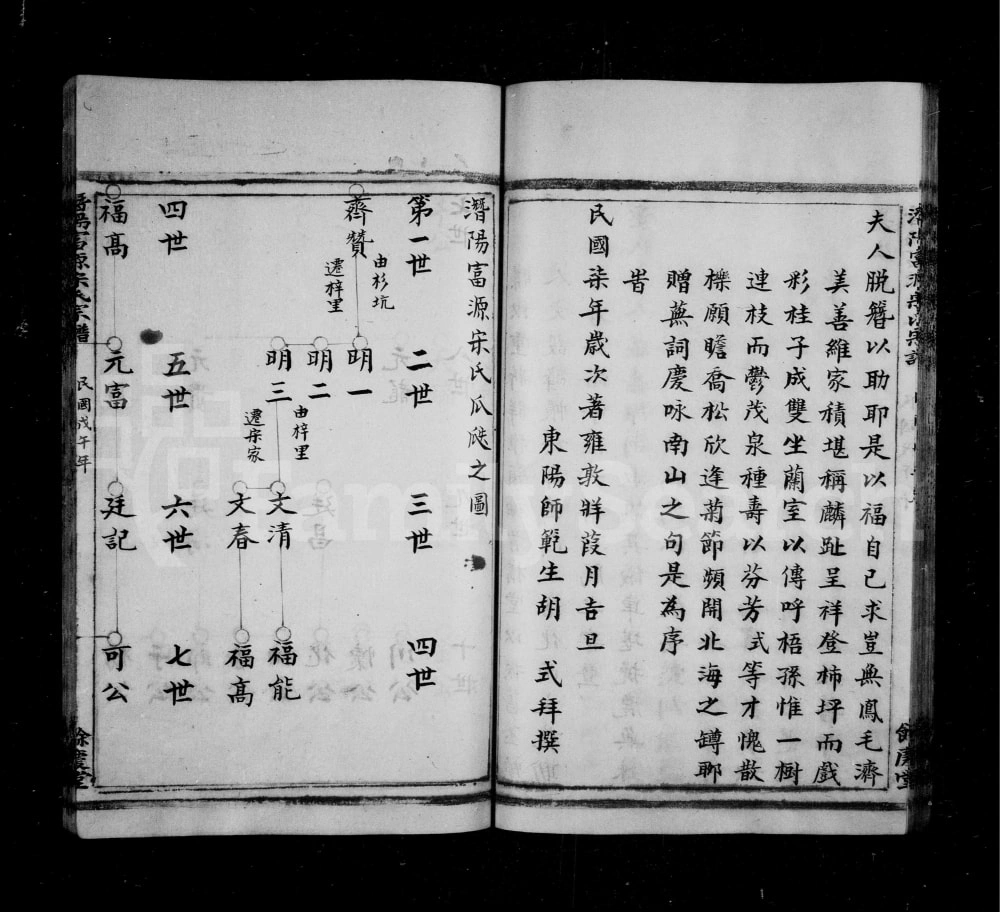 夫人脱簪以助耶是以福自己求豈無鳳毛濟
美善維家積堪稱麟趾呈祥登柿坪而戲
彩桂子成雙坐蘭室以傳呼梧孫惟一樹
連枝而鬱茂泉種壽以芬芳式等才愧散
櫟願瞻喬松欣逢菊節頻開北海之罇聊
贈蕪詞慶咏南山之句是為序
旹
民國柒年歲次著雍敦牂葭月吉旦
東陽師範生胡 式拜撰
餘慶堂
潛陽富源宋氏瓜瓞之圖
第一世 二世 三世 四世
薺贊
由杉坑
遷梓里
明一
明二
明三
由梓里
遷宋家
文清
文春
福能
福高
四世 五世 六世 七世
福高 元富 廷記 可公
民國戊午年
餘慶堂
FamilySearch